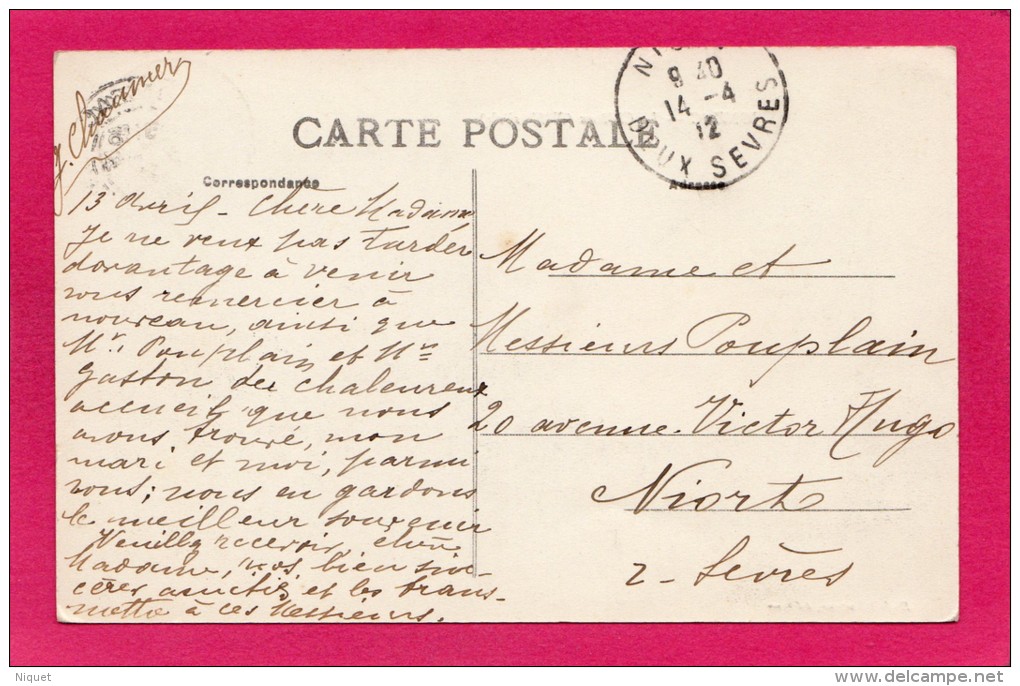 CARTE POSTALE
Correspondance
Adresse
9 40
14 -4
12
DEUX SEVRES
13 Avril - Chère Madame
Je ne veux pas tarder
davantage à venir
vous remercier à
nouveau, ainsi que
Mr. Pouplain et Mr
Gaston du chaleureux
accueil que nous
avons trouvé, mon
mari et moi, parmi
vous; nous en gardons
le meilleur souvenir
Veuillez recevoir, chère
Madame, nos bien sin-
cères amitiés et les trans-
mettre à ces Messieurs.
Madame et
Messieurs Pouplain
20 avenue Victor Hugo
Niort
2 - Sèvres
Niquet
delcampe.net